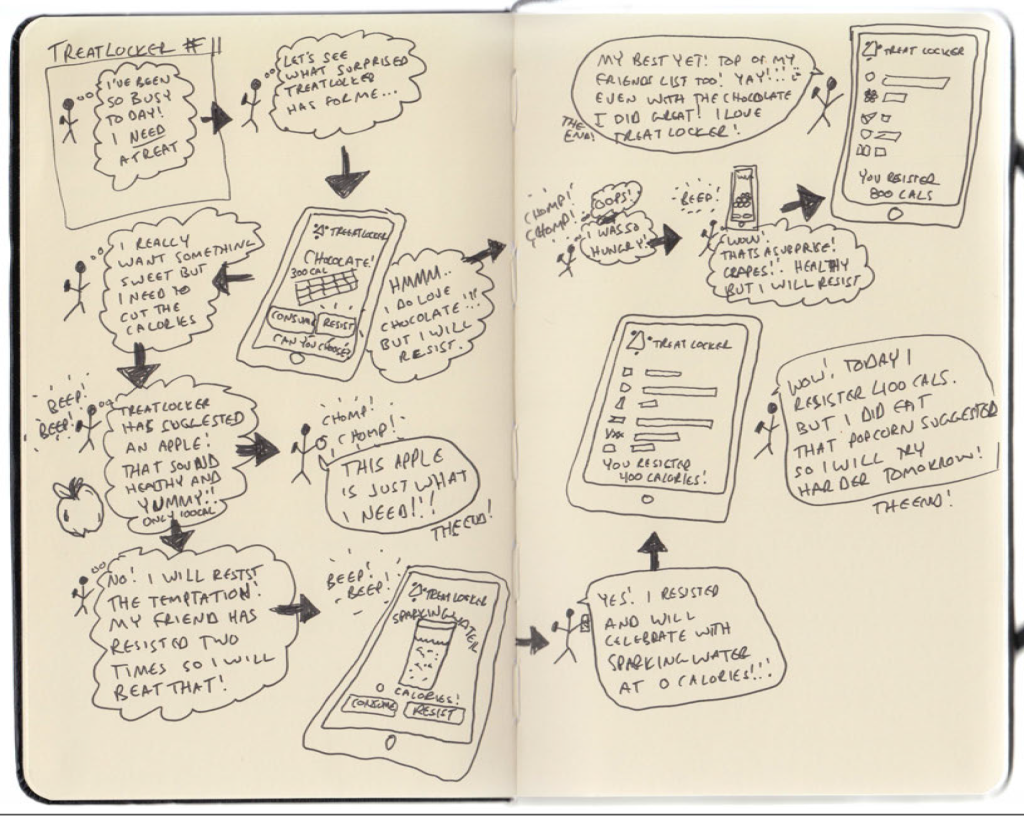 TREATLOCKER #11
I'VE BEEN
SO BUSY
TO DAY!
I NEED
A TREAT
LET'S SEE
WHAT SURPRISED
TREATLOCKER
HAS FOR ME...
TREATLOCKER
CHOCOLATE!
300 CAL
CONSUME
RESIST
CAN YOU CHOOSE?
HMMM...
I DO LOVE
CHOCOLATE!!!
BUT I WILL
RESIST.
I REALLY
WANT SOMETHING
SWEET BUT
I NEED TO
CUT THE
CALORIES
BEEP!
BEEP!
TREATLOCKER
HAS SUGGESTED
AN APPLE!
THAT SOUND
HEALTHY AND
YUMMY!!
ONLY 100CAL
CHOMP!
CHOMP!
THIS APPLE
IS JUST WHAT
I NEED!!!
THE END!
NO! I WILL RESIST
THE TEMPTATION!
MY FRIEND HAS
RESISTED TWO
TIMES SO I WILL
BEAT THAT!
BEEP!
BEEP!
TREAT LOCKER
SPARKING WATER
0 CALORIES!
CONSUME
RESIST
YES! I RESISTED
AND WILL
CELEBRATE WITH
SPARKING WATER
AT 0 CALORIES!!!
TREAT LOCKER
YOU RESISTER
400 CALORIES!
WOW! TODAY I
RESISTER 400 CALS.
BUT I DID EAT
THAT POPCORN SUGGESTED
SO I WILL TRY
HARDER TOMORROW!
THE END!
CHOMP!
CHOMP!
OOPS!
I WAS SO
HUNGRY!
BEEP!
WOW!
THATS A SUPRISE!
GRAPES!! HEALTHY
BUT I WILL RESIST
TREAT LOCKER
YOU RESISTER
800 CALS
MY BEST YET! TOP OF MY
FRIENDS LIST TOO! YAY!!!
EVEN WITH THE CHOCOLATE
I DID GREAT! I LOVE
TREATLOCKER!
THE
END!